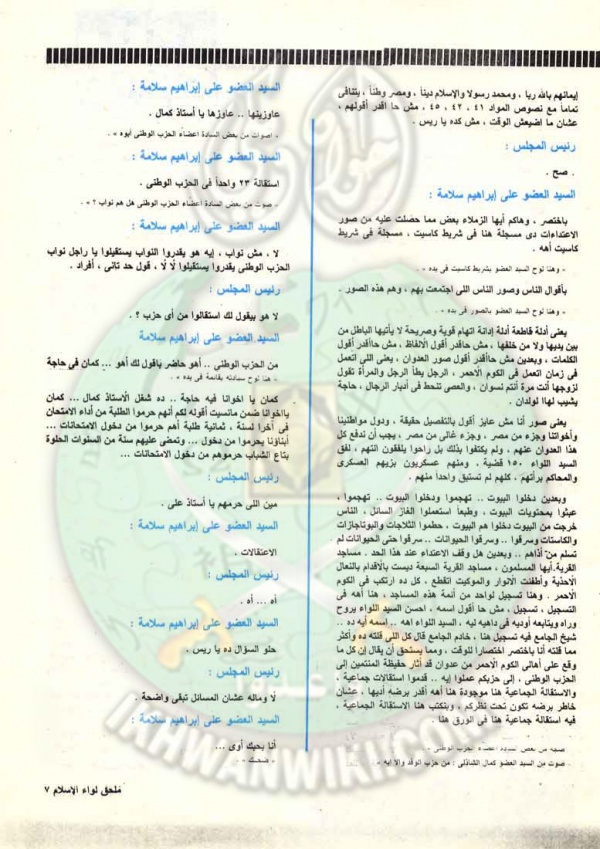 إيمانهم بالله ربا ، ومحمد رسولا والإسلام ديناً ، ومصر وطناً ، يتنافى
تماماً مع نصوص المواد ٤١ ، ٤٢ ، ٤٥ ، مش حا اقدر أقولهم ،
عشان ما اضيعش الوقت ، مش كده يا ريس .
رئيس المجلس :
. صح .
السيد العضو على إبراهيم سلامة :
باختصر ، وهاكم أيها الزملاء بعض مما حصلت عليه من صور
الاعتداءات دى مسجلة هنا فى شريط كاسيت ، مسجلة في شريط
كاسيت أهه .
« وهنا لوح السيد العضو بشريط كاسيت فى يده » .
بأقوال الناس وصور الناس اللى اجتمعت بهم ، وهم هذه الصور .
« وهنا لوح السيد العضو بالصور فى يده » .
يعنى أدلة قاطعة أدلة إدانة اتهام قوية وصريحة لا يأتيها الباطل من
بين يديها ولا من خلفها ، مش حاقدر أقول الألفاظ ، مش حاأقدر أقول
الكلمات ، وبعدين مش حاأقدر أقول صور العدوان ، يعنى اللى أتعمل
فى زمان اتعمل فى الكوم الأحمر ، الرجل يطأ الرجل والمرأة تقول
لزوجها أنت مرة أنتم نسوان ، والعصى تنحط فى أدبار الرجال ، حاجة
يشيب لهاا لولدان .
يعنى صور أنا مش عايز أقول بالتفصيل حقيقة ، ودول مواطنينا
وأخواتنا وجزء من مصر ، وجزء غالى من مصر ، يجب أن ندفع كل
هذا العدوان عنهم ، ولم يكتفوا بذلك بل راحوا يلفقون التهم ، لفق
السيد اللواء ١٥٠ قضية . ومنهم عسكريون بزيهم العسكرى
والمحاكم برأتهم ، كلهم لم تستبق واحداً منهم .
وبعدين دخلوا البيوت .. تهجموا ودخلوا البيوت .. تهجموا ،
عبثوا بمحتويات البيوت ، وطبعاً استعملوا الغاز السائل ، الناس
خرجت من البيوت دخلوا هم البيوت ، حطموا الثلاجات والبوتاجازات
والكاستات وسرقوا .. وسرقوا الحيوانات .. سرقوا حتى الحيوانات لم
تسلم من أذاهم .. وبعدين هل وقف الاعتداء عند هذا الحد . مساجد
القرية.أيها المسلمون ، مساجد القرية السبعة ديست بالأقدام بالنعال
الأحذية وأطفئت الأنوار والموكيت اتقطع ، كل ده ارتكب فى الكوم
الأحمر . وهنا تسجيل لواحد من أئمة هذه المساجد ، هنا أهه فى
التسجيل ، تسجيل ، مش حا أقول اسمه ، احسن السيد اللواء يروح
وراه ويتابعه أوديه فى داهيه ليه ، السيد اللواء اهه .. اسمه أيه ده ..
شيخ الجامع فيه تسجيل هنا ، خادم الجامع قال كل اللى قلته ده وأكثر
مما قلته أنا باختصر اختصارا للوقت ، ومما يستحق أن يقال إن كل ما
وقع على أهالى الكوم الأحمر من عدوان قد أثار حفيظة المنتمين إلى
الحزب الوطنى ، إلى حزبكم عملوا إيه .. قدموا استقالات جماعية ،
والاستقالة الجماعية هنا موجودة هنا أهه أقدر برضه أديها ، عشان
خاطر برضه تكون تحت نظركم ، وبنكتب هنا الاستقالة الجماعية .
فيه استقالة جماعية هنا فى الورق هنا .
ضجه من بعض السادة اعضاء الحزب الوطنى
« صوت من السيد العضو كمال الشاذلى : من حزب الوفد والا ايه »
السيد العضو على إبراهيم سلامة :
عاوزينها .. عاوزها يا أستاذ كمال .
« اصوات من بعض السادة اعضاء الحزب الوطنى أيوه » .
السيد العضو على إبراهيم سلامة :
استقالة ٢٣ واحداً فى الحزب الوطنى .
« صوت من بعض السادة اعضاء الحزب الوطنى هل هم نواب ؟ » .
السيد العضو على إبراهيم سلامة :
لا ، مش نواب ، إيه هو يقدروا النواب يستقيلوا يا راجل نواب
الحزب الوطنى يقدروا يستقيلوا لأ لأ ، قول حد تانى ، أفراد .
رئيس المجلس :
لا هو بيقول لك استقالوا من أى حزب ؟ .
السيد العضو على إبراهيم سلامة
من الحزب الوطنى .. أهو حاضر باقول لك أهو ... كمان فى حاجة
« هنا لوح سيادته بقائمة فى يده » .
كمان يا اخوانا فيه حاجة .. ده شغل الأستاذ كمال ... كمان
يااخوانا ضمن مانسيت أقوله لكم أنهم حرموا الطلبة من أداء الامتحان
فى آخرا لسنة ، ثمانية طلبة أهم حرموا من دخول الامتحانات ...
أبناؤنا يحرموا من دخول ... وتمضى عليهم سنة من السنوات الحلوة
بتاع الشباب حرموهم من دخول الامتحانات ...
رئيس المجلس :
مين اللى حرمهم يا أستاذ على .
السيد العضو على إبراهيم سلامة :
الاعتقالات .
رئيس المجلس :
أه ... أه .
السيد العضو على إبراهيم سلامة :
حلو السؤال ده يا ريس .
رئيس المجلس :
لأ وماله عشان المسائل تبقى واضحة .
السيد العضو على إبراهيم سلامة :
أنا بحبك أوى ...
« ضحك »
ملحق لواء الإسلام ٧
IKHWANWIKI.COM